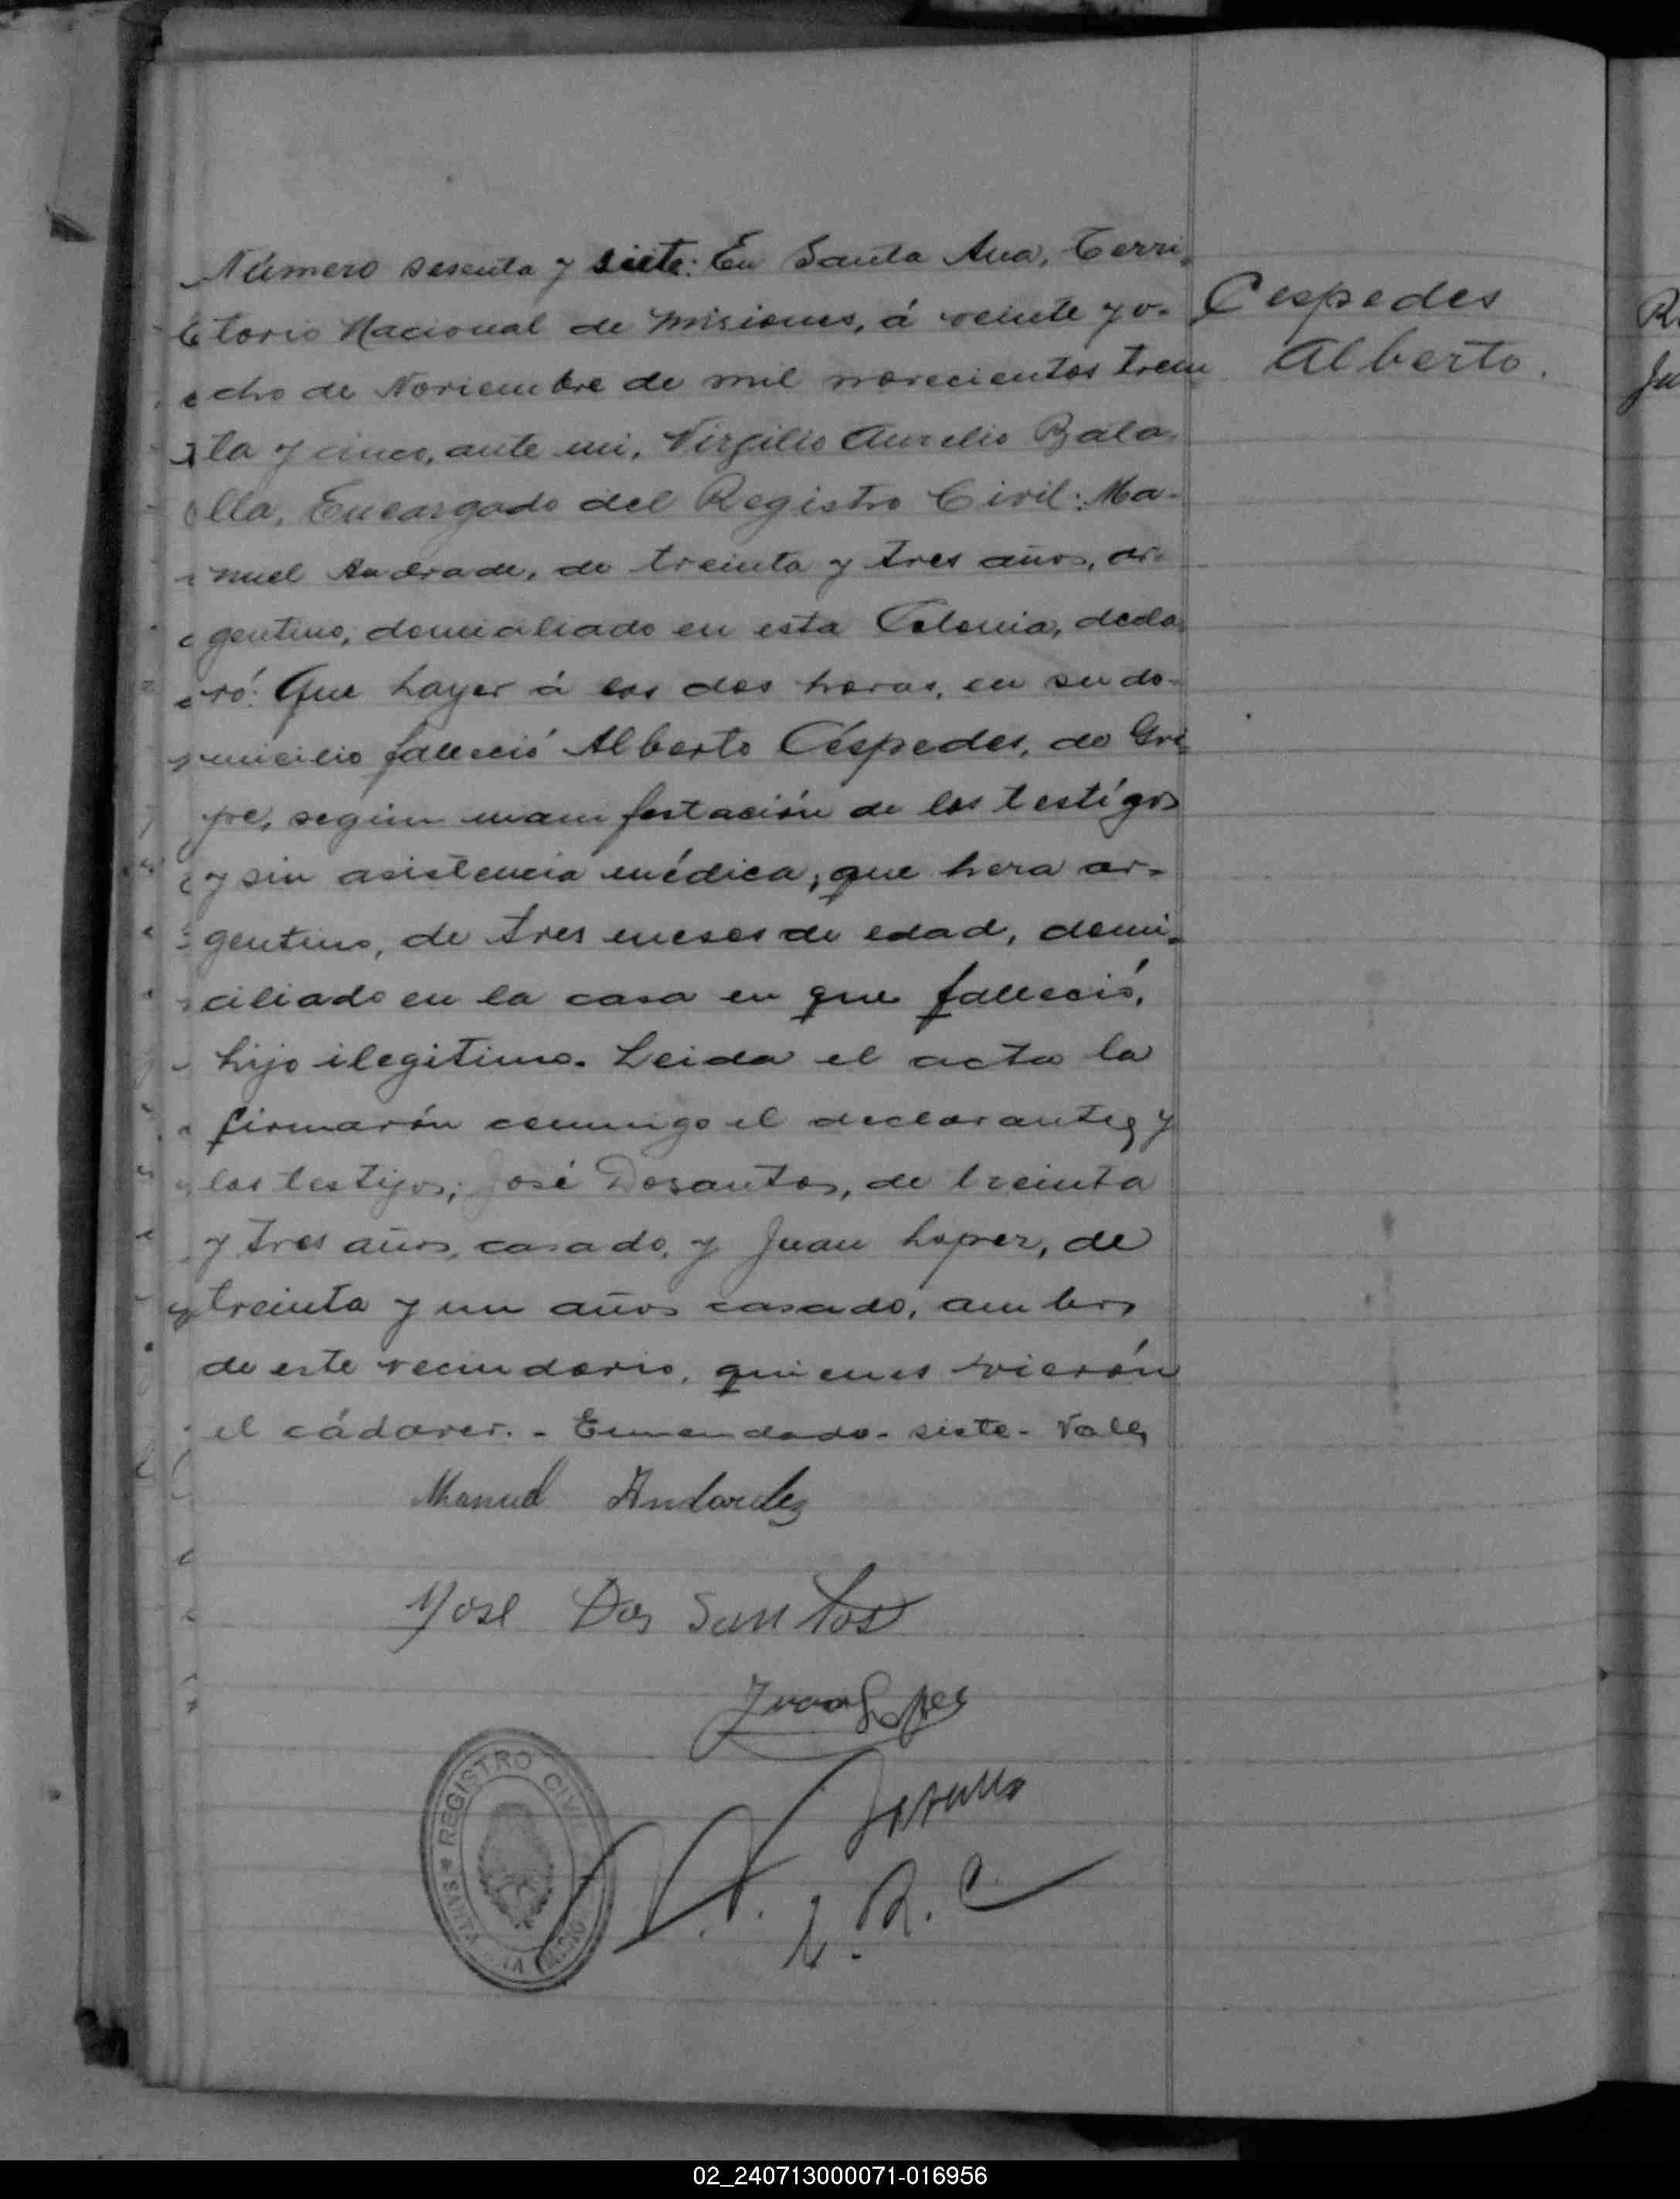 Número sesenta y siete: En Santa Ana, Terri-
torio Nacional de Misiones, á veinte y o-
cho de Noviembre de mil novecientos trein
ta y cinco, ante mi, Virgilio Aurelio Bala-
lla, Encargado del Registro Civil: Ma-
nuel Andrade, de treinta y tres años, ar-
gentino, domiciliado en esta Colonia, decla-
ró: Que hayer á las dos horas, en su do-
micilio falleció Alberto Céspedes, de Gri-
pe, según manifestación de los testigos
y sin asistencia médica, que hera ar-
gentino, de tres meses de edad, domi-
ciliado en la casa en que falleció,
hijo ilegitimo. Leida el acta la
firmarón conmigo el declarante, y
los testigos; José Dosantos, de treinta
y tres años, casado, y Juan Lopez, de
treinta y un años casado, ambos
de este vecindario, quienes vierón
el cádaver. - Enmendado - siete - Vale,
Cespedes
Alberto.
Manuel Andarde
Jose Dos Santos
Juan Lopes
E. R. C
REGISTRO CIVIL
SANTA
02_240713000071-016956